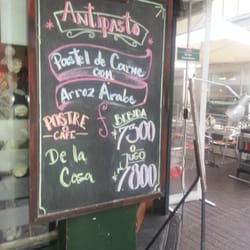 Antipasto
Pastel de Carne
con
Arroz Arabe
POSTRE
o
CAFE
BEBIDA
$7500
o
JUGO
De la
Casa
$7800